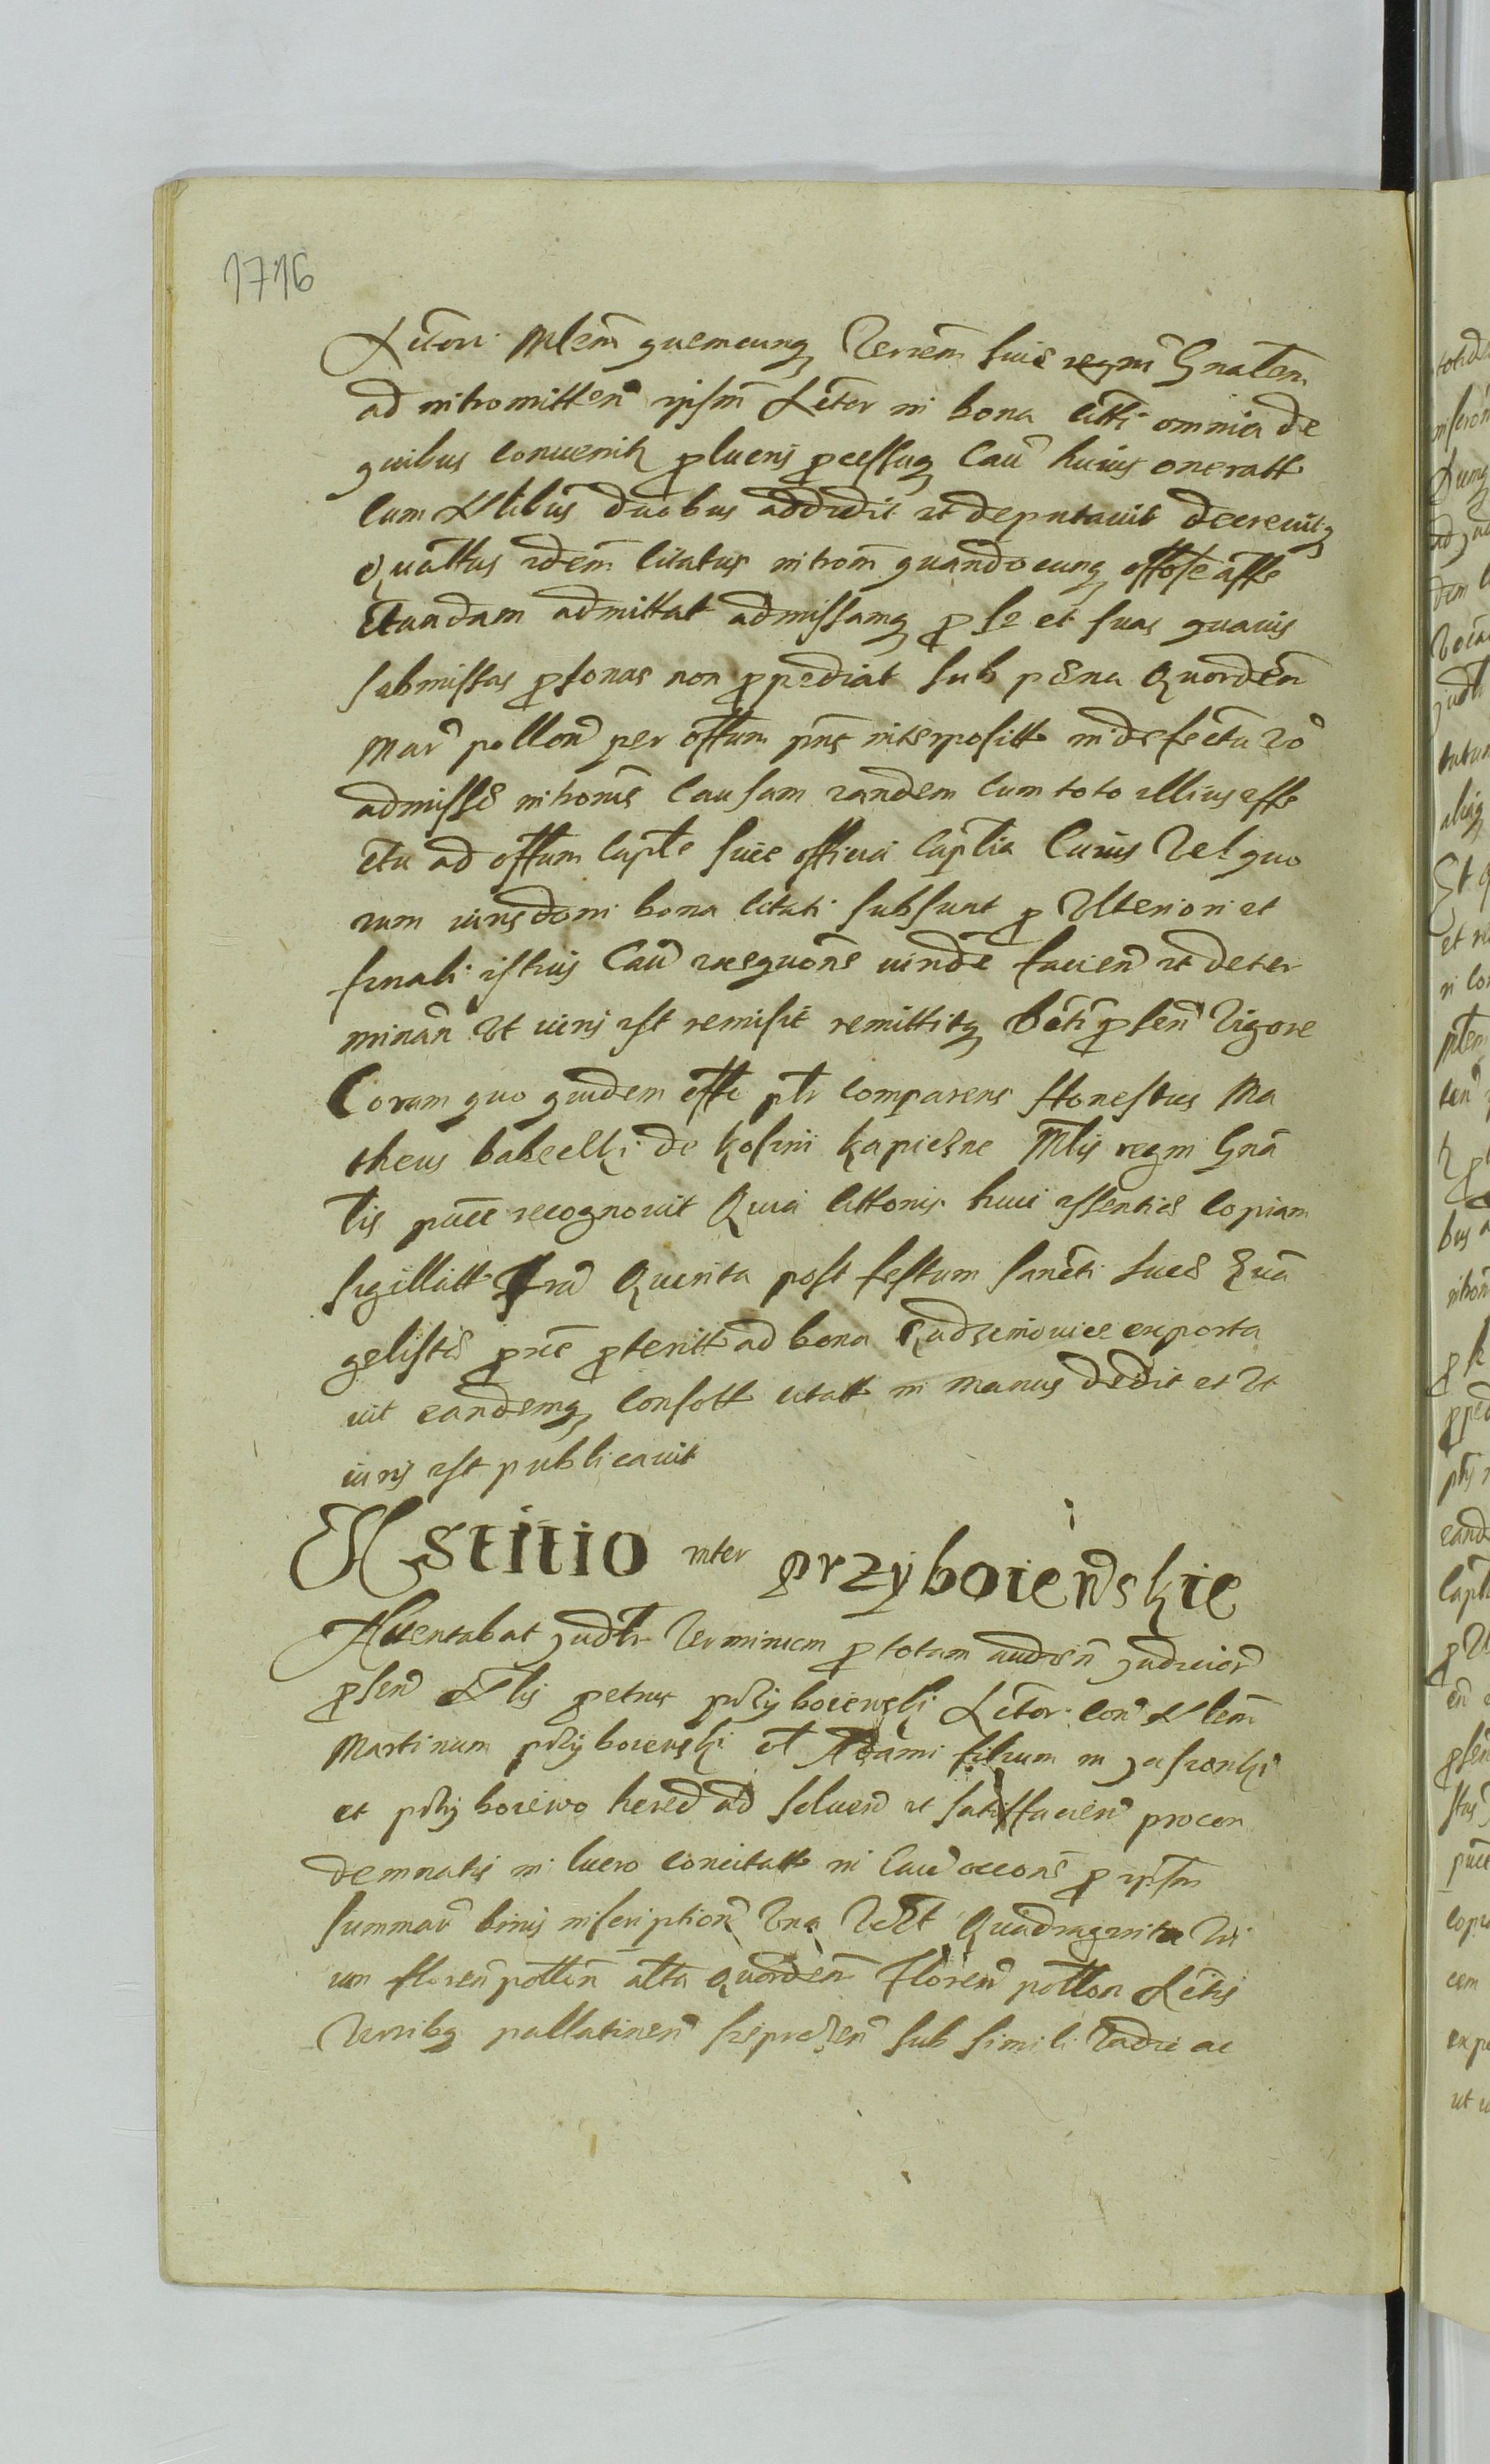 1716
Actori Mlem quemcunq Terrem sive regni Gnalem
ad intromitten ipsm Actor in bona citti omnia de
quibus convenith p lucris pcessuq Cau huius oneratt
Cum Nlibus duobus addidit et deputavit decrevitq
Quattus idem citatus introm quandocunq offose affe
ctandam admittat admissamq p se et suas quavis
submissas psonas non ppediat sub pena Quorden
Mar pollon per offum pns interpositt in defectu vo
admisse introms Causam eandem cum toto illius effe
ctu ad offum Caple sive officii Captia Cuius Vel quo
rum iurisdoni bona citati subsunt p Ulteriori et
finali istius Cau exequone vinde facien et deter
minan Ut iuris est remisit remittitq Decti psen Vigore
Coram quo quidem offo ptr comparens Honestus Ma
theus babecki de kosini kapiczne Mlis regni Gna
lis puce recognovit Quia cittonis huic essentie copiam
sigillatt fria Quinta post festum sancti Luce Eua
geliste pxe pteritt ad bona Rudzinowice exporta
vit eandemq consott citatt in manus dedit et Ut
iuris est publicavit
Astitio inter przyboiewskie
Attentabat judlr Terminum p totam audien judicior
psen Nlis petrus przyboiewski Actor con Nlem
Martinum przyboiewski et Adami filium in jasionki
et przyboiewo hered ad solven et satisfacien procon
demnatis in lucro concitatt in Cau accons p ipsm
summar binis inscription Una Vdlt Quadraginta tri
um floren pollin altra Quorden Floren pollon Actis
Terribq pallatinen sieprczen sub simili vadii ac